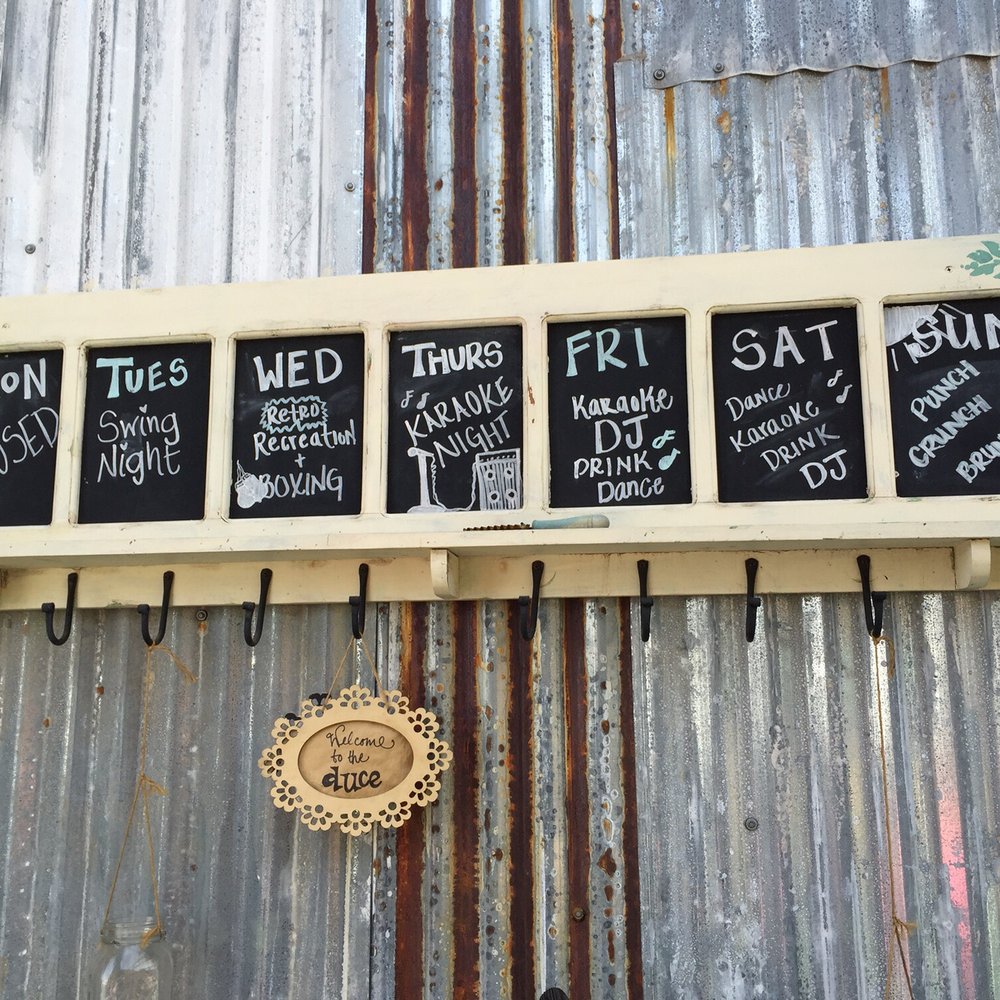 ON
OSED
TUES
Swing
Night
WED
Retro
Recreation
+
BOXING
THURS
KARAOKE
NIGHT
FRI
Karaoke
DJ
DRINK
Dance
SAT
Dance
Karaoke
DRINK
DJ
SUN
PUNCH
CRUNCH
BRUN
Welcome
to the
duce